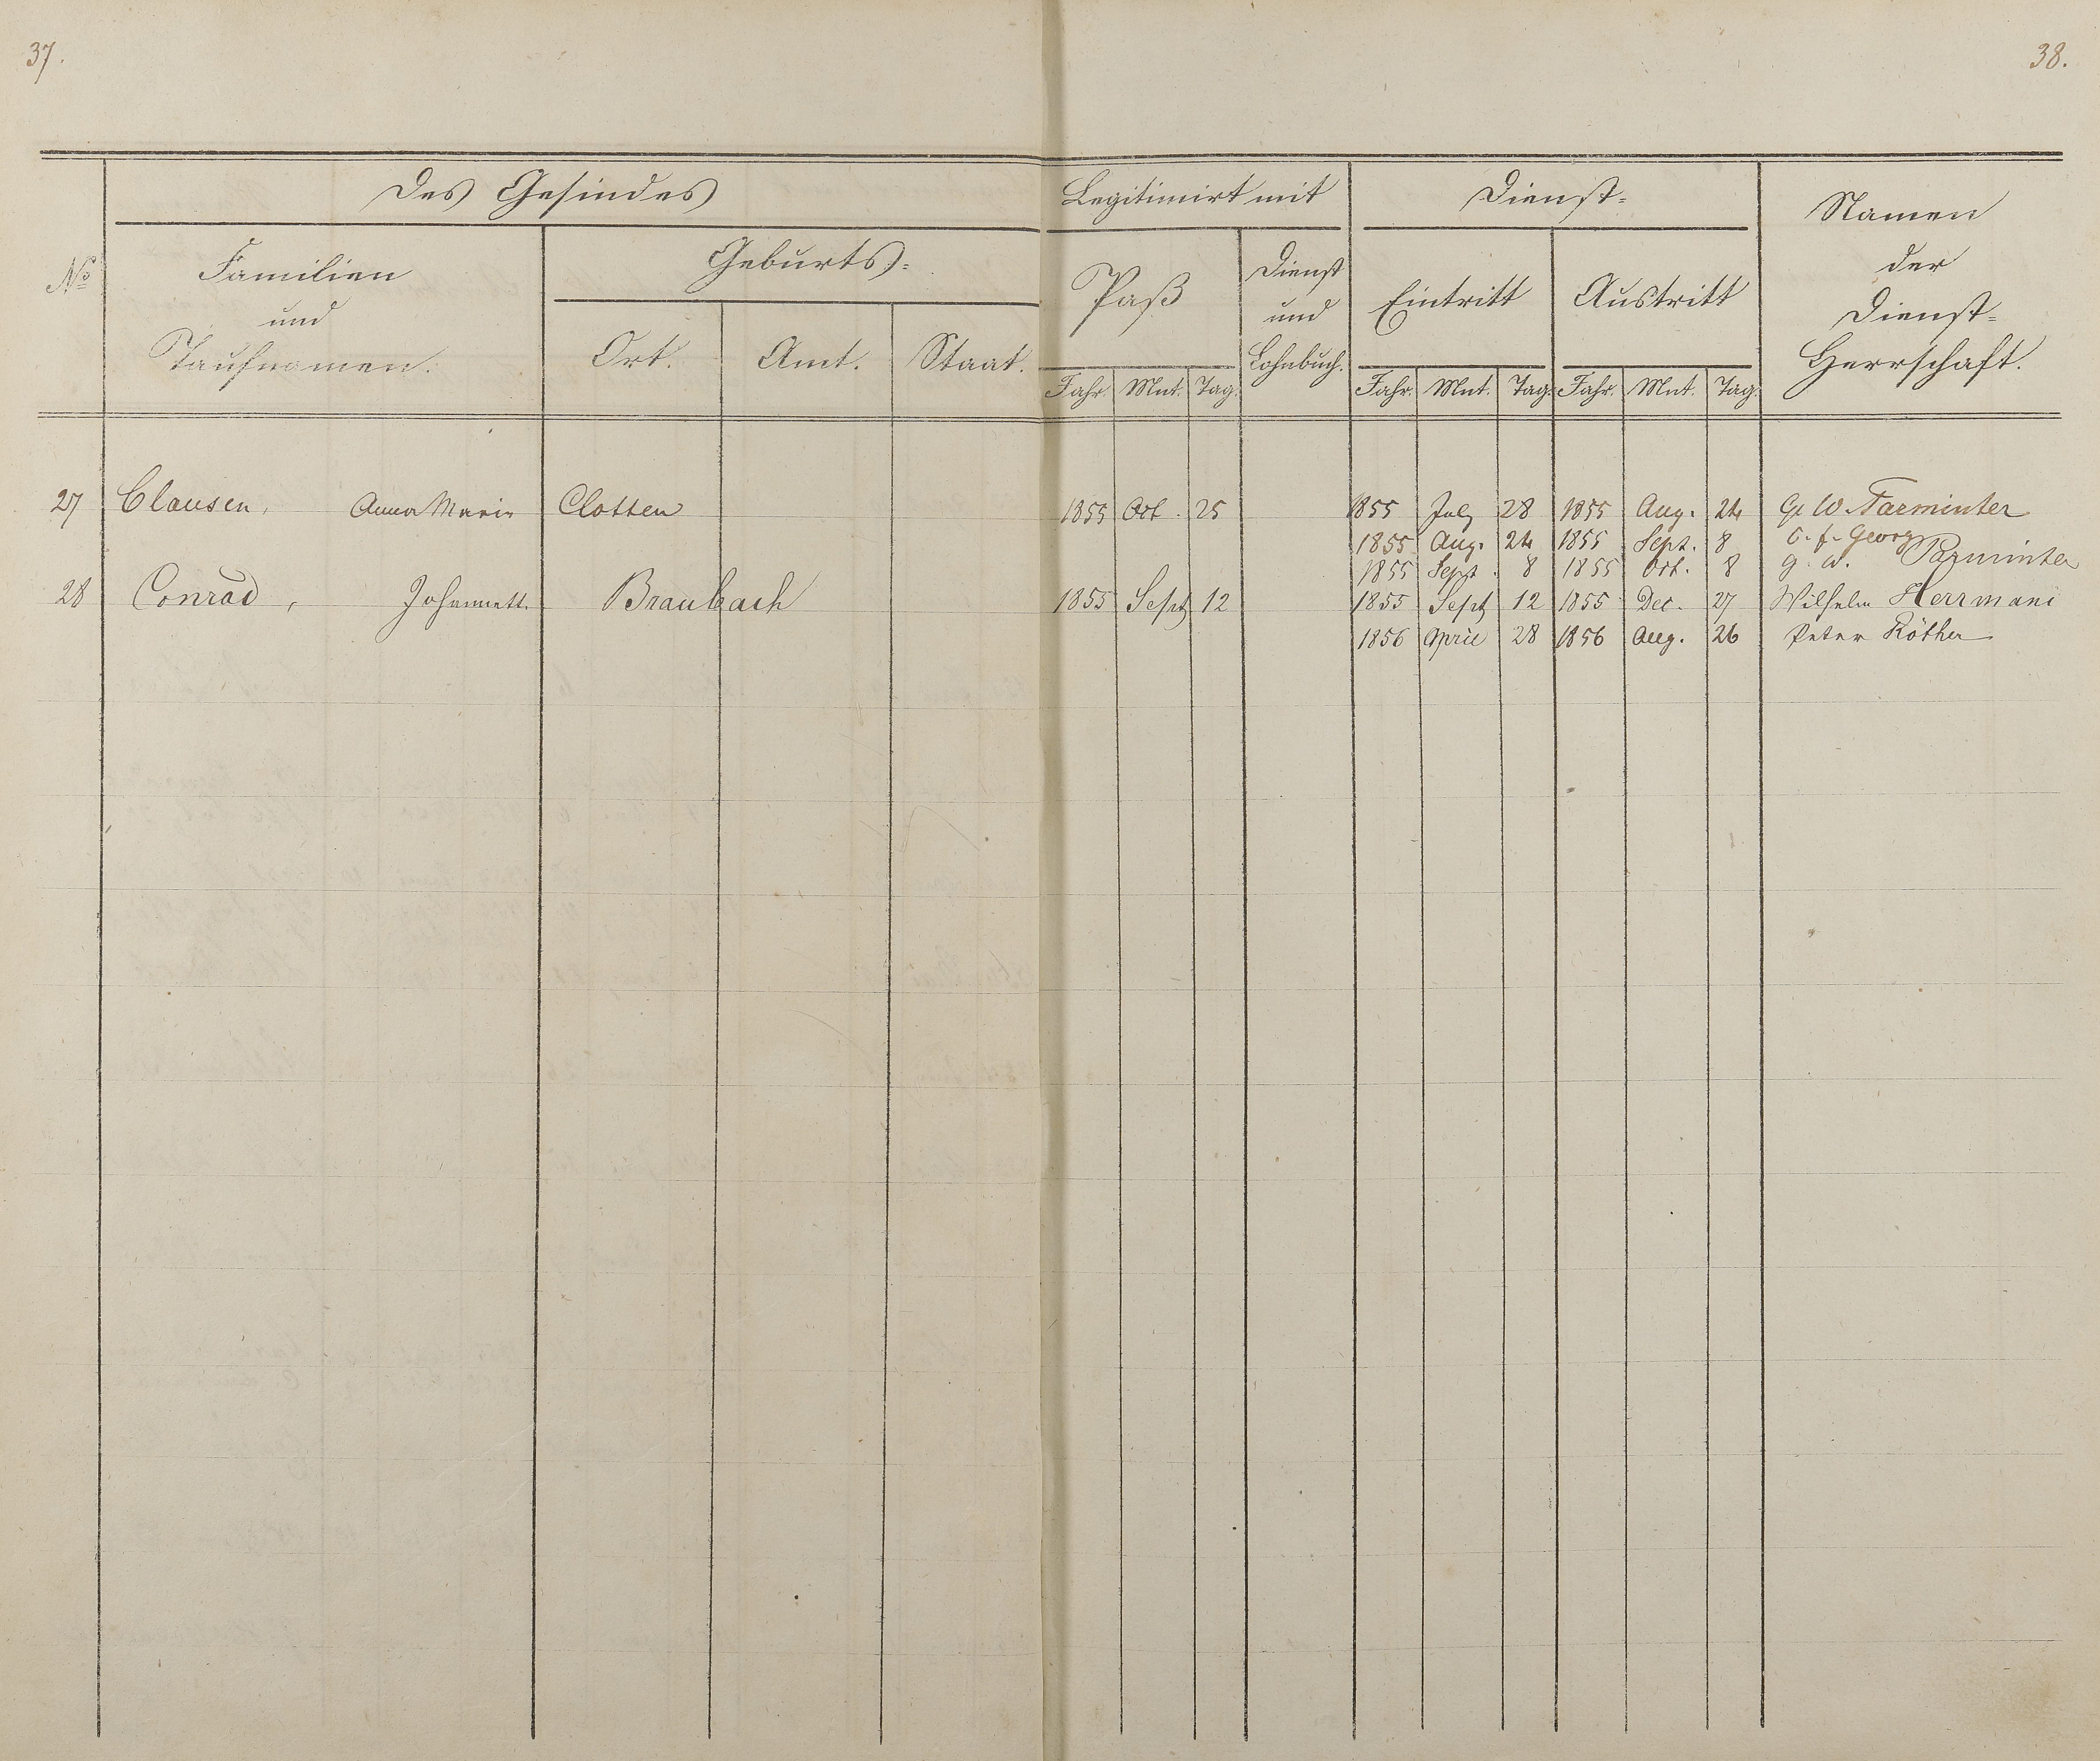 37.
38.
Des Gesindes
Legitimirt mit
Dienst-
Namen
der
Dienst-
Herrschaft.
No
Familien
und
Taufnamen.
Geburts-
Ort.
Amt.
Staat.
Paß
Dienst
und
Lohnbuch.
Eintritt
Austritt
Jahr. Mnt. Tag.
Jahr. Mnt. Tag. Jahr. Mnt. Tag.
27 Clausen, Anna Maria Clotten 1855 Oct. 25 1855 July 28 1855 Aug. 24 G. W. Parminter
1855 Aug. 24 1855 Sept. 8 C. f. Georg
1855 Sept. 8 1855 Oct. 8 G. W. Parminter
28 Conrad, Johannette Braubach 1855 Sept 12 1855 Sept 12 1855 Dec. 27 Wilhelm Herrmani
1856 April 28 1856 Aug. 26 Peter Röther